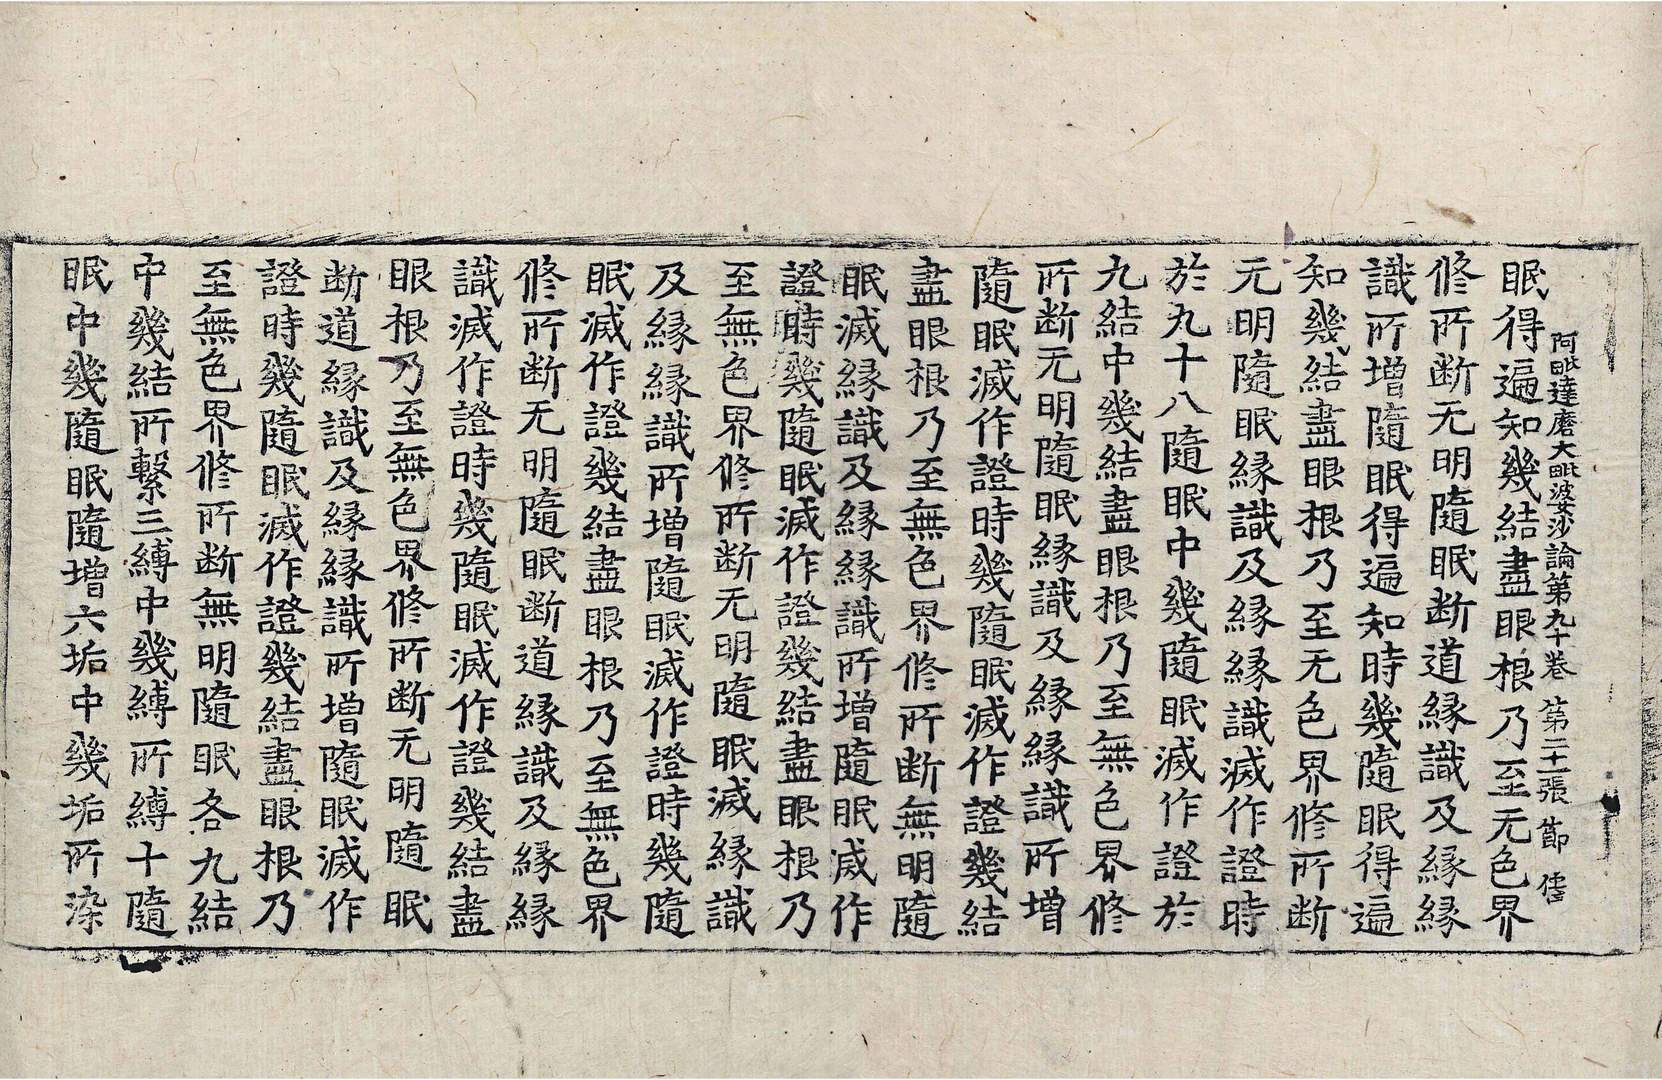 阿毗達磨大毗婆沙論第九十卷 第二十一張 節
眠得遍知幾結盡眼根乃至无色界
修所断无明隨眠断道縁識及縁縁
識所增隨眠得遍知時幾隨眠得遍
知幾結盡眼根乃至无色界修所断
无明隨眠縁識及縁縁識滅作證時
於九十八隨眠中幾隨眠滅作證於
九結中幾結盡眼根乃至無色界修
所断无明隨眠縁識及縁縁識所增
隨眠滅作證時幾隨眠滅作證幾結
盡眼根乃至無色界修所断無明隨
眠滅縁識及縁縁識所增隨眠滅作
證時幾隨眠滅作證幾結盡眼根乃
至無色界修所断无明隨眠滅縁識
及縁縁識所增隨眠滅作證時幾隨
眠滅作證幾結盡眼根乃至無色界
修所断无明隨眠断道縁識及縁縁
識滅作證時幾隨眠滅作證幾結盡
眼根乃至無色界修所断无明隨眠
断道縁識及縁縁識所增隨眠滅作
證時幾隨眠滅作證幾結盡眼根乃
至無色界修所断無明隨眠各九結
中幾結所繫三縛中幾縛所縛十隨
眠中幾隨眠隨增六垢中幾垢所染